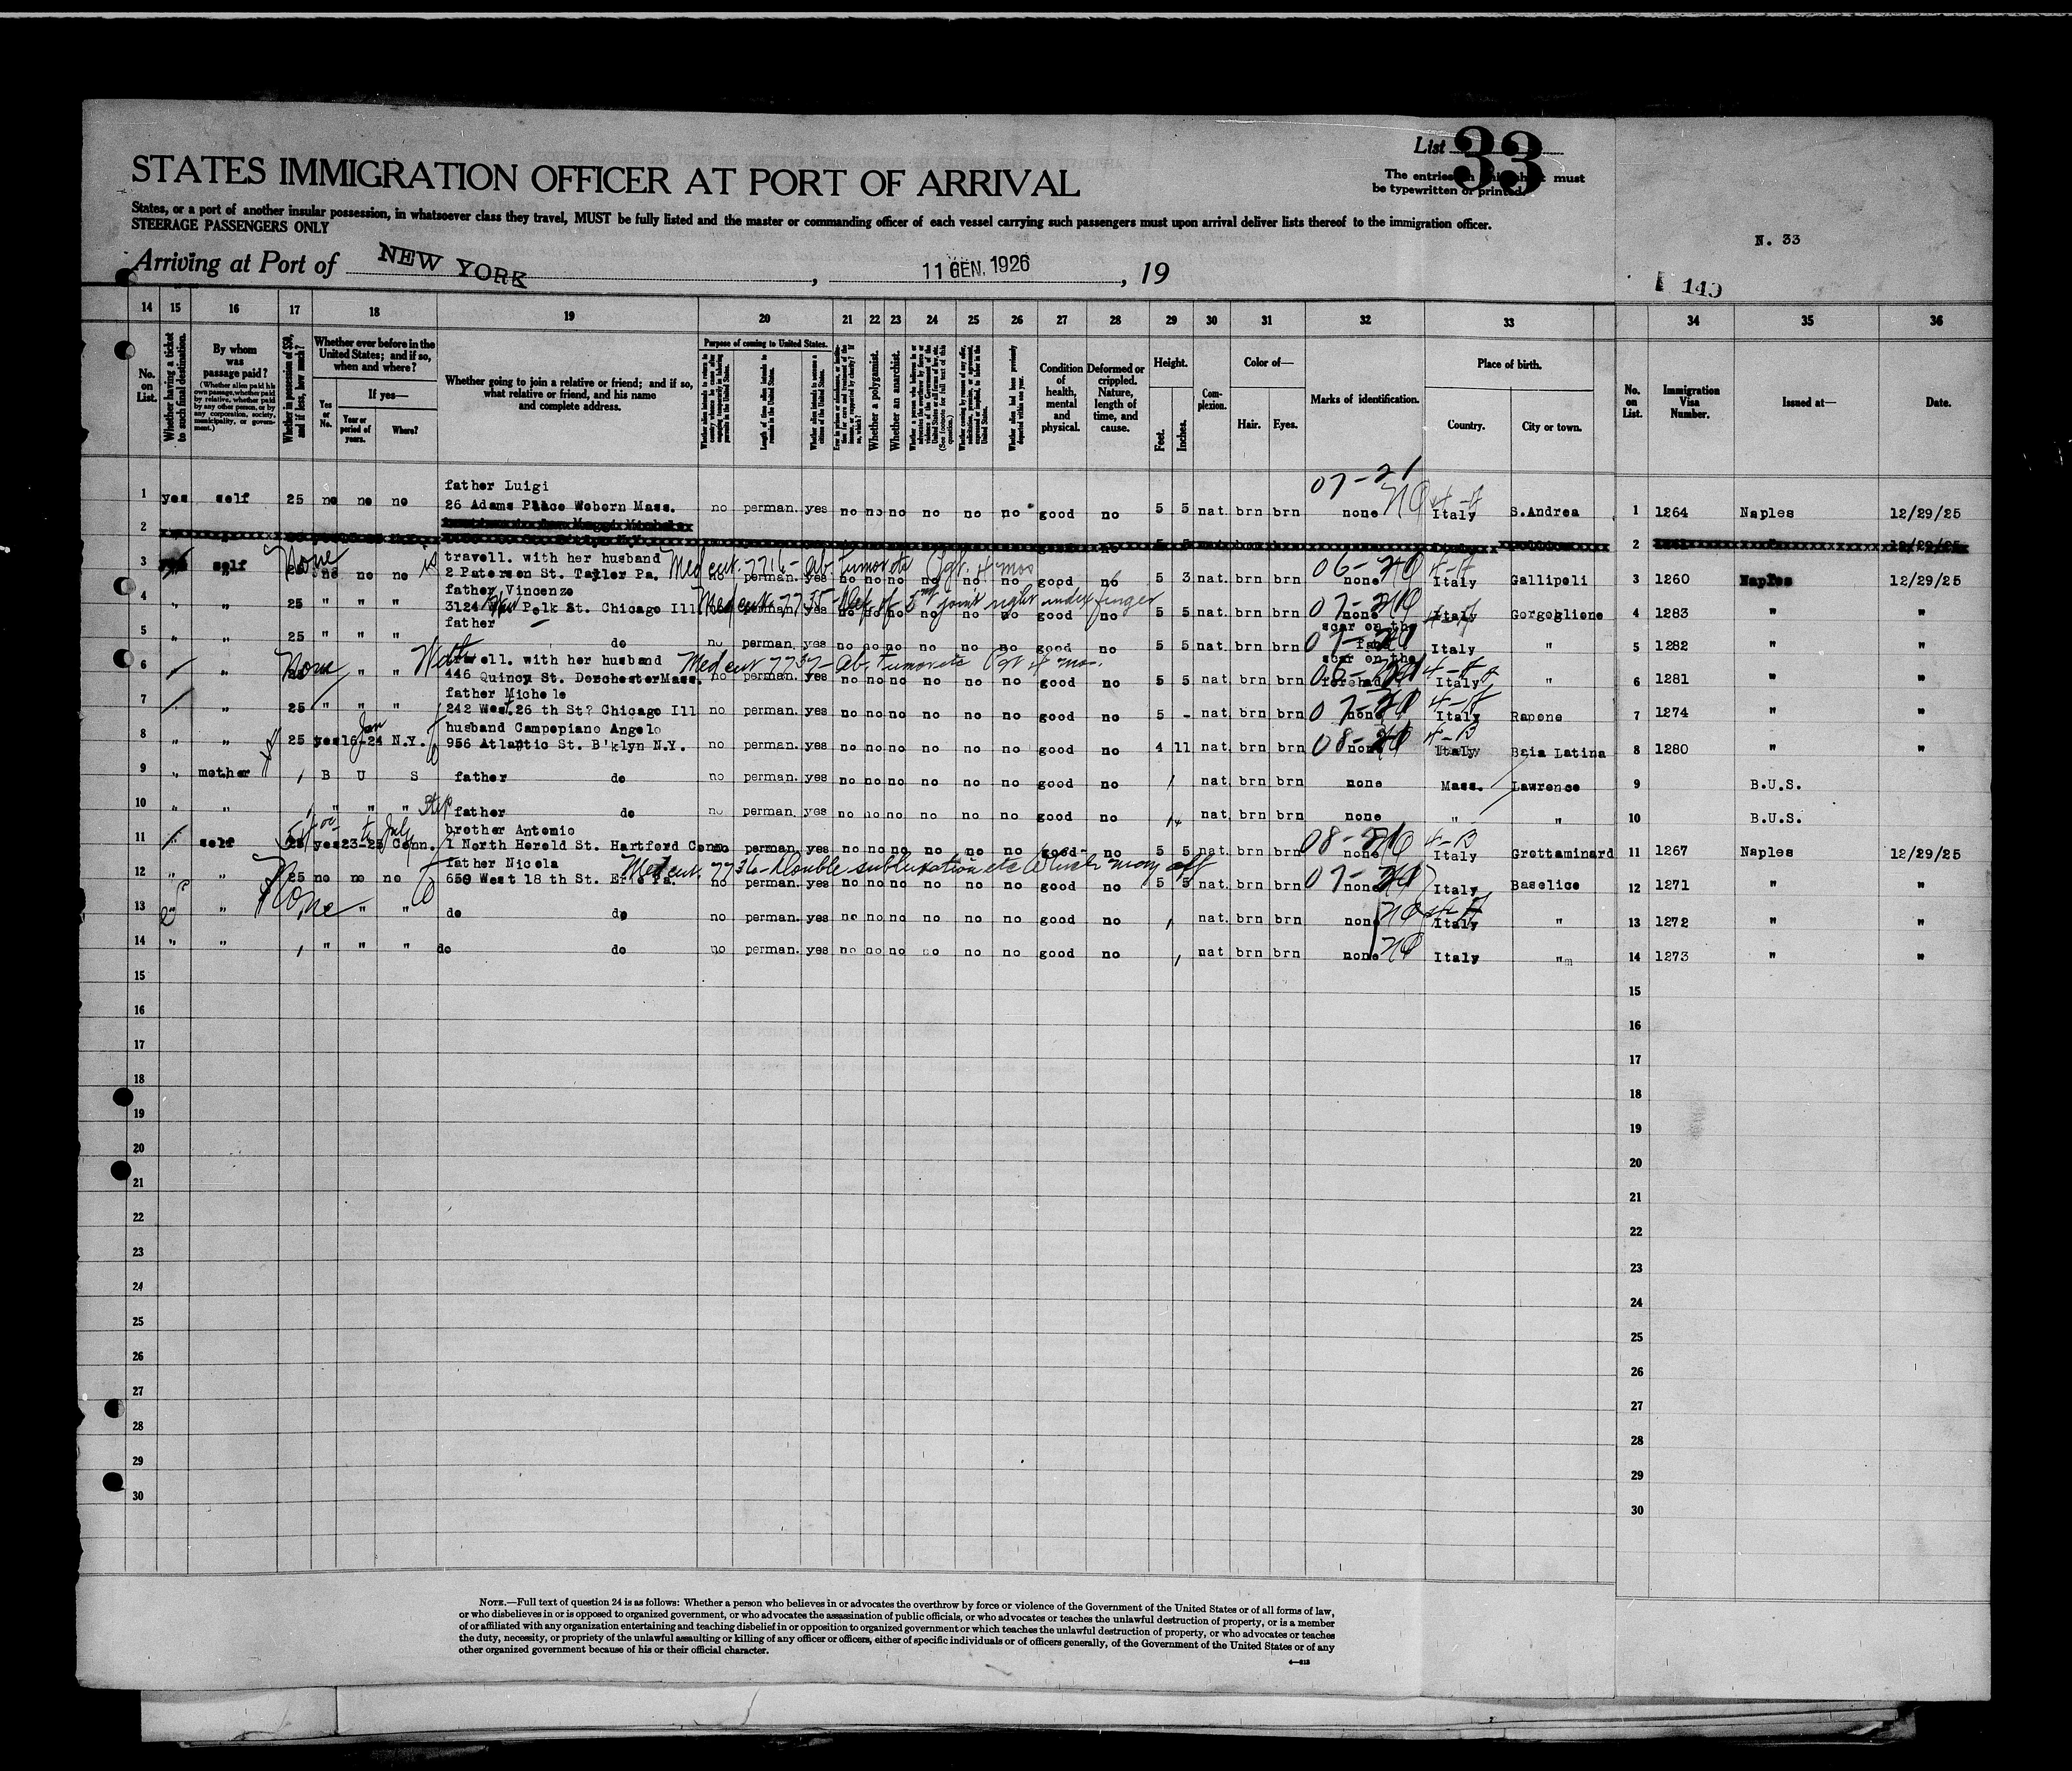 List 33
STATES IMMIGRATION OFFICER AT PORT OF ARRIVAL
The entries must
be typewritten or printed.
States, or a port of another insular possession, in whatsoever class they travel, MUST be fully listed and the master or commanding officer of each vessel carrying such passengers must upon arrival deliver lists thereof to the immigration officer.
STEERAGE PASSENGERS ONLY
N. 33
Arriving at Port of NEW YORK, 11 GEN. 1926, 19
14 15 16 17 18 19 20 21 22 23 24 25 26 27 28 29 30 31 32 33 34 35 36
No. on List.
Whether having a ticket to such final destination.
By whom was passage paid?
(Whether alien paid his own passage, whether paid by relative, whether paid by any other person, or by any corporation, society, municipality, or government.)
Whether in possession of $50, and if less, how much?
Whether ever before in the United States; and if so, when and where?
If yes—
Yes or No.
Year or period of years.
Where?
Whether going to join a relative or friend; and if so, what relative or friend, and his name and complete address.
Purpose of coming to United States.
Length of time alien intends to remain in the United States.
Whether alien intends to become a citizen of the United States.
Whether a polygamist.
Whether an anarchist.
Condition of health, mental and physical.
Deformed or crippled. Nature, length of time, and cause.
Height.
Feet.
Inches.
Complexion.
Color of—
Hair.
Eyes.
Marks of identification.
Place of birth.
Country.
City or town.
No. on List.
Immigration Visa Number.
Issued at—
Date.
father Luigi
1 yes self 25 no no no 26 Adams Place Woborn Mass. no perman. yes no no no no no no good no 5 5 nat. brn brn none Italy S.Andrea 1 1264 Naples 12/29/25
2 2
travell. with her husband
3 self None no no no 2 Paterson St. Taylor Pa. no perman. yes no no no no no no good no 5 3 nat. brn brn none Italy Gallipoli 3 1260 Naples 12/29/25
father Vincenzo
4 " " 25 " " " 3124 Polk St. Chicago Ill perman. yes no no no no no no good no 5 5 nat. brn brn none Italy Gorgoglione 4 1283 " "
father scar on the
5 " " 25 " " " do no perman. yes no no no no no no good no 5 5 nat. brn brn Italy " 5 1282 " "
travell. with her husband scar on the
6 " None " " 446 Quincy St. DorchesterMass. no perman. yes no no no no no no good no 5 5 nat. brn brn forehad Italy " 6 1281 " "
father Michele
7 " 25 " " " 242 West 26 th St? Chicago Ill no perman. yes no no no no no no good no 5 - nat. brn brn none Italy Rapone 7 1274 " "
husband Campopiano Angelo
8 " " 25 yes 16-24 N.Y. 956 Atlantic St. B'klyn N.Y. no perman. yes no no no no no no good no 4 11 nat. brn brn none Italy Baia Latina 8 1280 " "
9 " mother B U S father do no perman. yes no no no no no no good no nat brn brn none Mass. Lawrence 9 B.U.S.
10 " " " " " Step father do no perman. yes no no no no no no good no nat. brn brn none " " 10 B.U.S.
brother Antonio
11 self yes 23-25 July Conn. 1 North Herold St. Hartford Conn no perman. yes no no no no no no good no 5 5 nat. brn brn none Italy Grottaminard 11 1267 Naples 12/29/25
father Nicola
12 " " 25 no no no 650 West 18 th St. Erie Pa. no perman. yes no no no no no no good no 5 5 nat. brn brn none Italy Baselice 12 1271 " "
13 " None " " do do no perman. yes no no no no no no good no nat. brn brn none Italy " 13 1272 " "
14 " " " " " do do no perman. yes no no no no no no good no nat brn brn none Italy " 14 1273 " "
15 15
16 16
17 17
18 18
19 19
20 20
21 21
22 22
23 23
24 24
25 25
26 26
27 27
28 28
29 29
30 30
NOTE.—Full text of question 24 is as follows: Whether a person who believes in or advocates the overthrow by force or violence of the Government of the United States or of all forms of law,
or who disbelieves in or is opposed to organized government, or who advocates the assassination of public officials, or who advocates or teaches the unlawful destruction of property, or is a member
of or affiliated with any organization entertaining and teaching disbelief in or opposition to organized government or which teaches the unlawful destruction of property, or who advocates or teaches
the duty, necessity, or propriety of the unlawful assaulting or killing of any officer or officers, either of specific individuals or of officers generally, of the Government of the United States or of any
other organized government because of his or their official character.